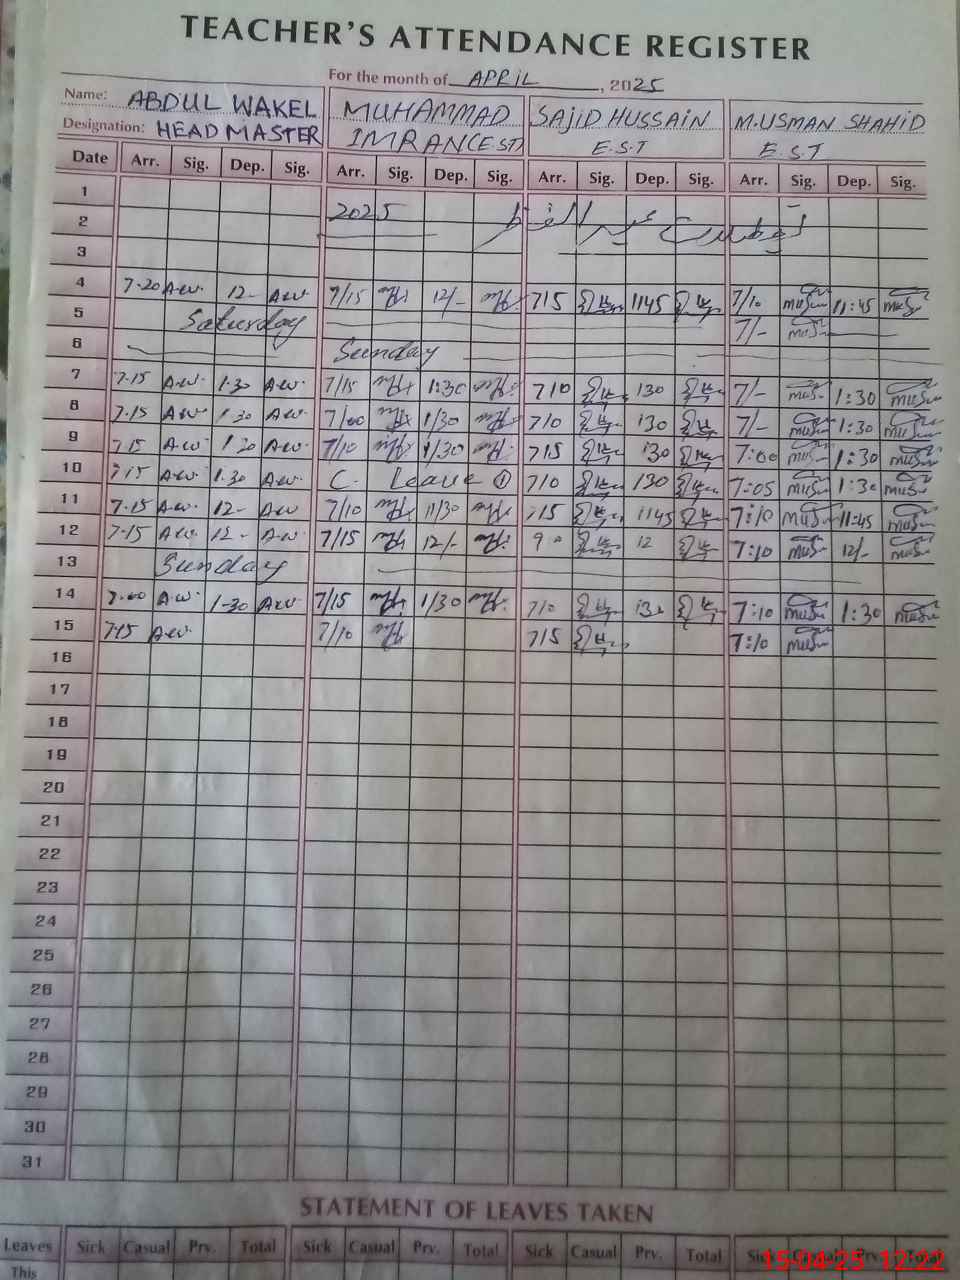 TEACHER'S ATTENDANCE REGISTER
For the month of APRIL, 2025
Name: ABDUL WAKEL MUHAMMAD SAJID HUSSAIN M.USMAN SHAHID
Designation: HEAD MASTER IMRAN(E.ST) E.S.T E.S.T
Date Arr. Sig. Dep. Sig. Arr. Sig. Dep. Sig. Arr. Sig. Dep. Sig. Arr. Sig. Dep. Sig.
1
2 2025
3
4 7-20 A.w. 12- A.w. 7/15 12/- 715 1145 7/10 11:45
5 Saturday 7/-
6 Sunday
7 7-15 A.w. 1-30 A.w. 7/15 1:30 710 130 7/- 1:30
8 7-15 A.w. 1-30 A.w. 7/00 1/30 710 130 7/- 1:30
9 7-15 A.w. 1-30 A.w. 7/10 1/30 715 130 7:00 1:30
10 7-15 A.w. 1-30 A.w. C. Leave ① 710 130 7:05 1:30
11 7-15 A.w. 12- A.w. 7/10 11/30 715 1145 7:10 11:45
12 7-15 A.w. 12- A.w. 7/15 12/- 12 7:10 12/-
13 Sunday
14 7-00 A.w. 1-30 A.w. 7/15 1/30 710 130 7:10 1:30
15 7-15 A.w. 7/10 715 7:10
16
17
18
19
20
21
22
23
24
25
26
27
28
29
30
31
STATEMENT OF LEAVES TAKEN
Leaves Sick Casual Prv. Total Sick Casual Prv. Total Sick Casual Prv. Total Sick Casual Prv. Total
This
15-04-25 12:22